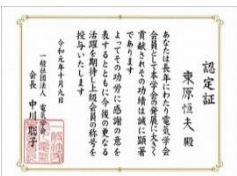 認定証
東原恒夫 殿
あなたは長年にわたり電気学会
会員として本学会の発展に大きく
貢献されその功績は誠に顕著
であります
よってその功労に感謝の意を
表するとともに今後の更なる
活躍を期待し上級会員の称号を
授与いたします
令和元年十月九日
一般社団法人 電気学会
会長 中川聡子